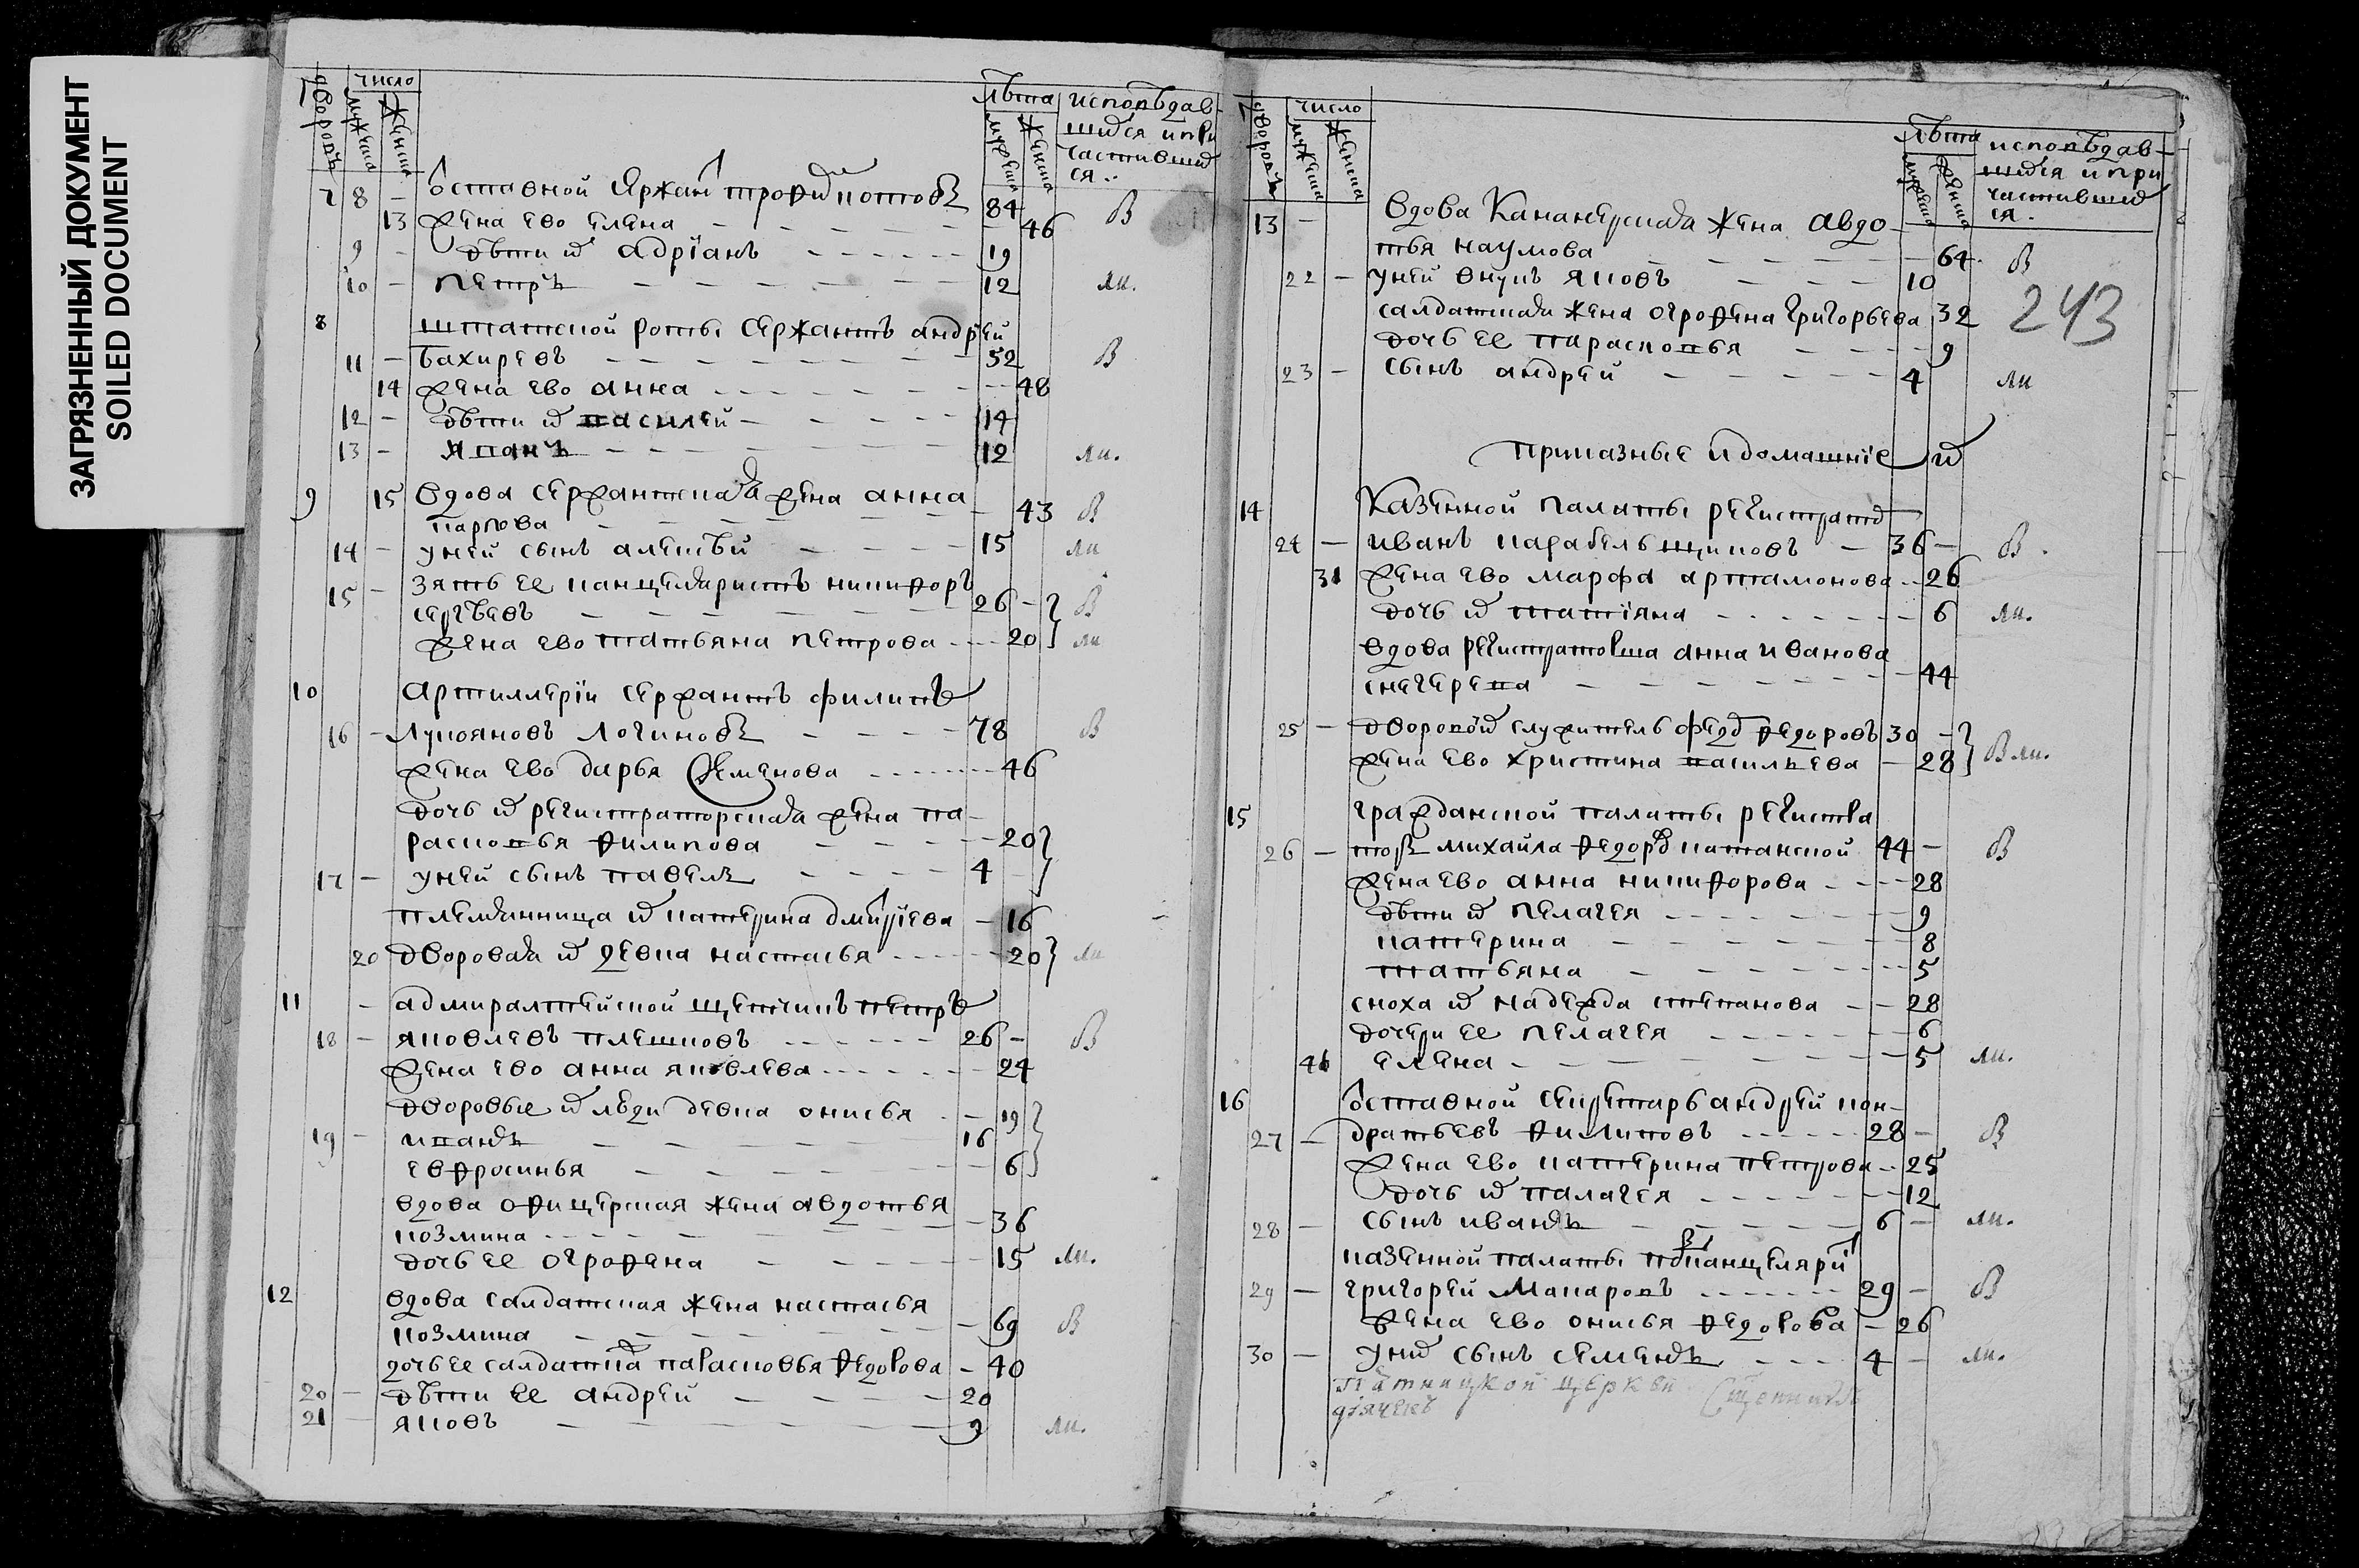 ЗАГРЯЗНЕННЫЙ ДОКУМЕНТ
SOILED DOCUMENT
дворовъ
число
мужеска
женска
лѣта
мужеска
женска
исповѣдав-
шихся и при
частивших
ся
7 8 — Отставной сержант трофим котовъ 84 В
13 жена ево елена — 46
9 — дѣти их адріанъ 19
10 — петръ — 12 ли.
8 штатской роты сержантъ андрѣй
11 — бахиревъ — 52 В
14 жена ево анна — 48
12 — дѣти их василей — 14
13 — яковъ — 12 ли.
9 15 вдова сержантская жена анна
карпова — 43 В
14 — у ней сынъ алексѣй — 15 ли
15 — зять ее канцеляристъ никифоръ
сергѣевъ — 26 В
жена ево татьяна петрова — 20 ли
10 артиллеріи сержантъ филипъ
16 — лукояновъ логиновъ — 78 В
жена ево дарья семенова — 46
дочь их регистраторская жена па-
расковья филипова — 20
17 — у ней сынъ павелъ — 4
племянница их катерина дмитріева — 16
20 дворовая их девка настасья — 20 ли
11 — адмиралтейской щетчикъ петръ
18 — яковлевъ плешковъ — 26 — В
жена ево анна яковлева — 24
дворовые их люди девка онисья — 19
19 — иванъ — 16
евфросинья — 6
вдова офицерская жена авдотья
козмина — 36
дочь ее огрофена — 15 ли.
12 вдова салдатская жена настасья
козмина — 69 В
дочь ее салдатка парасковья федорова — 40
20 — дѣти ее андрей — 20
21 — яковъ — 9 ли.
дворовъ
число
мужеска
женска
лѣта
мужеска
женска
исповѣдав-
шихся и при
частивших
ся.
13 — вдова Канонерская жена авдо-
тья наумова — 64 В
22 — у ней внукъ яковъ — 10
243
салдатская жена огрофена григорьева 32
дочь ее парасковья — 9
23 — сынъ андрей — 4 ли
приказные и домашніе их
14 Казенной палаты регистратор
24 — иванъ карабельщиковъ — 36 — В.
31 жена ево марфа артамонова — 26
дочь их татіяна — 6 ли.
вдова регистраторша анна иванова
снегерева — 44
25 — дворовой их служитель федор федоровъ 30 —
жена ево христина васильева — 28 В ли.
15 гражданской палаты регистра
26 — торъ михайла федоров катанской 44 — В
жена ево анна никифорова — 28
дѣти их пелагея — 9
катерина — 8
татьяна — 5
сноха их надежда степанова — 28
дочери ее пелагея — 6
46 елена — 5 ли.
16 Отставной секретарь андрей кон-
27 — дратьевъ филиповъ — 28 — В
жена ево катерина петрова — 25
дочь их палагея — 12
28 — сынъ иванъ — 6 — ли.
казенной палаты подканцеляри
29 — григорей Макаровъ — 29 — В
жена ево онисья федорова — 26
30 — у них сынъ семенъ — 4 — ли.
Пятницкой церкви
дьячекъ